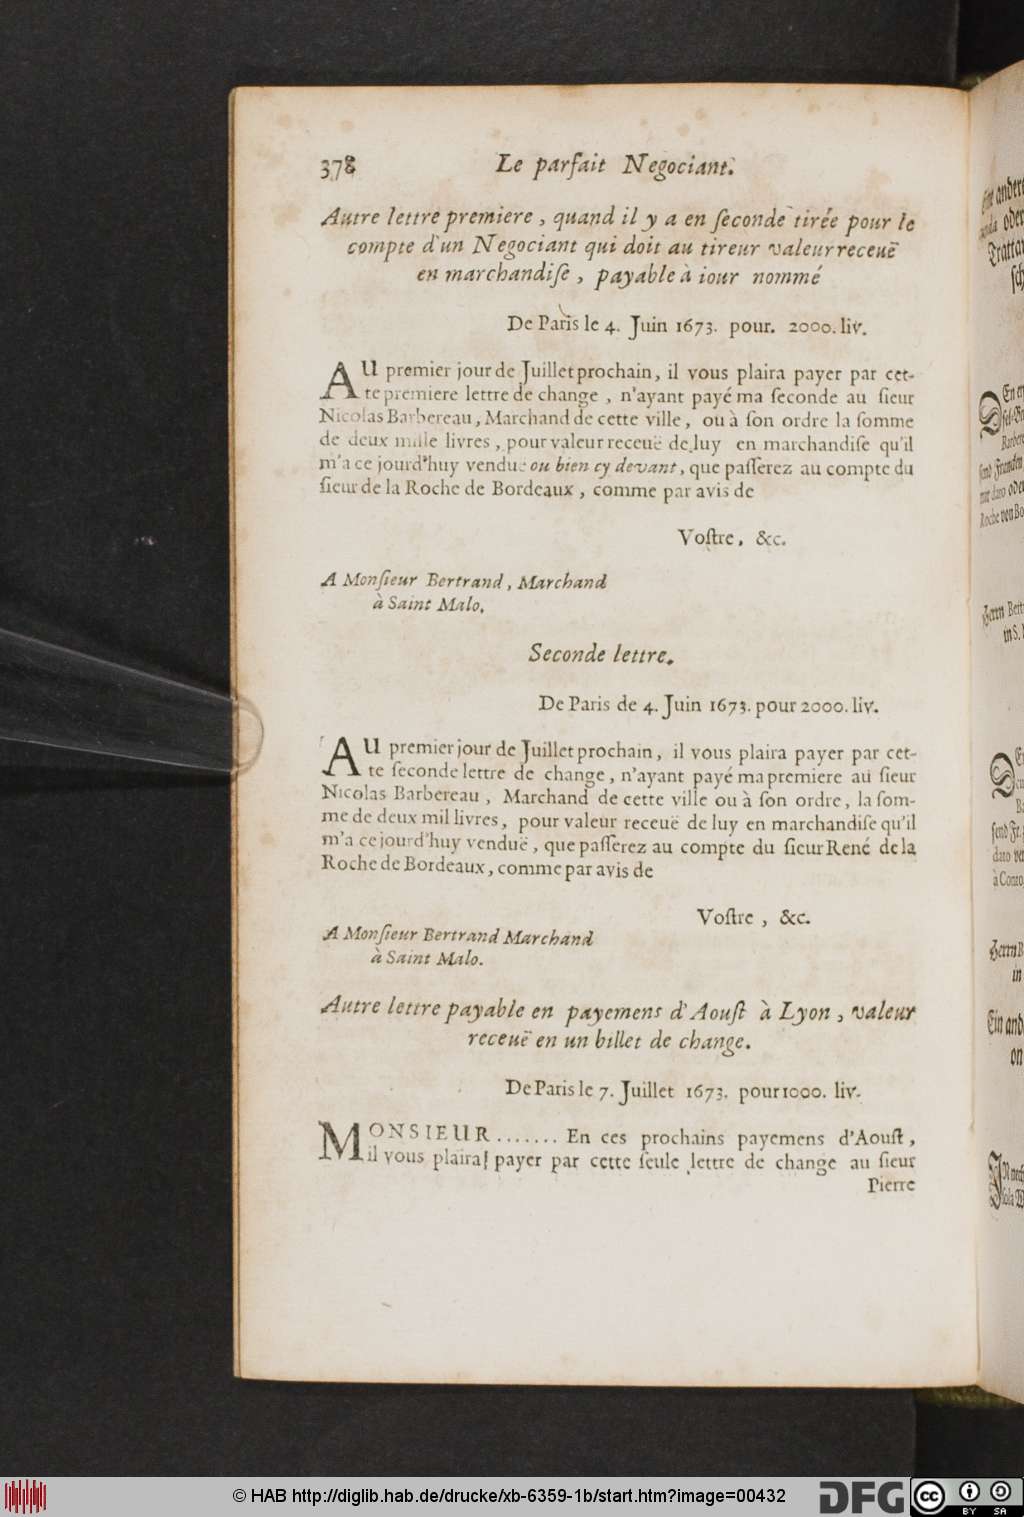 378 Le parfait Negociant.
Autre lettre premiere, quand il y a en ſeconde tirée pour le
compte d'un Negociant qui doit au tireur valeur receuë
en marchandiſe, payable à iour nommé
De Paris le 4. Juin 1673. pour. 2000. liv.
AU premier jour de Juillet prochain, il vous plaira payer par cet-
te premiere lettre de change, n'ayant payé ma ſeconde au ſieur
Nicolas Barbereau, Marchand de cette ville, ou à ſon ordre la ſomme
de deux mille livres, pour valeur receuë de luy en marchandiſe qu'il
m'a ce jourd'huy venduë ou bien cy devant, que paſſerez au compte du
ſieur de la Roche de Bordeaux, comme par avis de
Voſtre, &c.
A Monſieur Bertrand, Marchand
à Saint Malo.
Seconde lettre.
De Paris de 4. Juin 1673. pour 2000. liv.
AU premier jour de Juillet prochain, il vous plaira payer par cet-
te ſeconde lettre de change, n'ayant payé ma premiere au ſieur
Nicolas Barbereau, Marchand de cette ville ou à ſon ordre, la ſom-
me de deux mil livres, pour valeur receuë de luy en marchandiſe qu'il
m'a ce jourd'huy venduë, que paſſerez au compte du ſieur René de la
Roche de Bordeaux, comme par avis de
Voſtre, &c.
A Monſieur Bertrand Marchand
à Saint Malo.
Autre lettre payable en payemens d'Aouſt à Lyon, valeur
receuë en un billet de change.
De Paris le 7. Juillet 1673. pour 1000. liv.
MONSIEUR....... En ces prochains payemens d'Aouſt,
il vous plaira payer par cette ſeule lettre de change au ſieur
Pierre
© HAB http://diglib.hab.de/drucke/xb-6359-1b/start.htm?image=00432
DFG
cc
BY SA